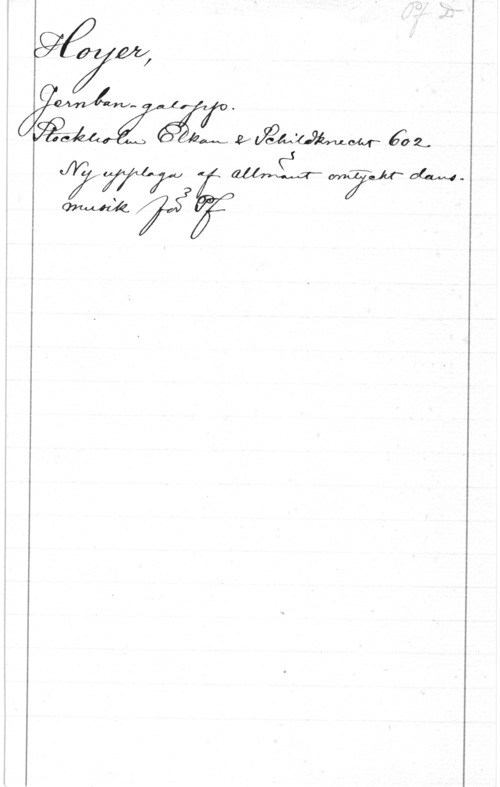 Pf D
Hoyer,
Jernban-galopp.
Stockholm Elkan & Schildknecht 602.
Ny upplaga af allmänt omtyckt dans-
musik för Pf